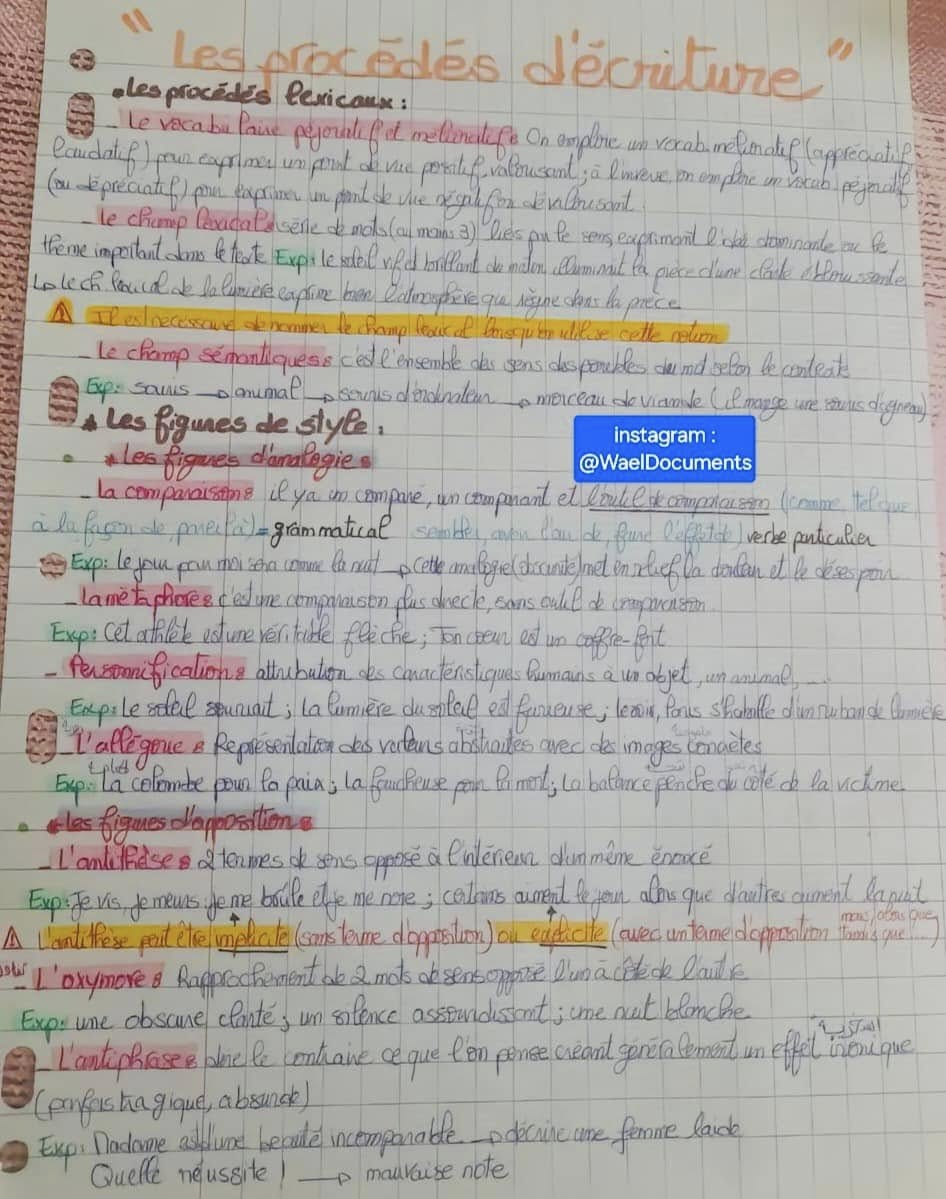 " Les procédés d'écriture "
• Les procédés lexicaux :
_ Le vocabulaire péjoratif et mélioratif : On emploie un vocab. mélioratif (appréciatif
laudatif) pour exprimer un point de vue positif, valorisant ; à l'inverse, on emploie un vocab péjoratif
(ou dépréciatif) pour exprimer un point de vue négatif dévalorisant.
_ le champ lexical : série de mots (au moins 3) liés par le sens exprimant l'idée dominante ou le
thème important dans le texte Exp : le soleil vif et brillant du matin illuminait la pièce d'une clarté éblouissante
↳ le ch. lexical de la lumière exprime bien l'atmosphère qui règne dans la pièce
⚠ Il est nécessaire de nommer le champ lexical lorsqu'on utilise cette notion
_ Le champ sémantique : c'est l'ensemble des sens disponibles du mot selon le contexte
Exp : souris → animal → souris d'ordinateur → morceau de viande (il mange une souris d'agneau)
* Les figures de style :
instagram :
@WaelDocuments
* Les figures d'analogie :
_ la comparaison : il y a un comparé, un comparant et l'outil de comparaison (comme, tel que
à la façon de, pareil à) = grammatical sembler, avoir l'air de, faire l'effet de) verbe particulier
Exp : Le jour pour moi sera comme la nuit → cette analogie (obscurité) met en relief la douleur et le désespoir
_ la métaphore : c'est une comparaison plus directe, sans outil de comparaison
Exp : Cet athlète est une véritable flèche ; Ton cœur est un coffre-fort
_ Personnification : attribution des caractéristiques humains à un objet, un animal, ...
Exp : Le soleil souriait ; La lumière du soleil est furieuse ; Paris s'habille d'un ruban de lumière
_ L'allégorie : Représentation des vertus abstraites avec des images concrètes
Exp : La colombe pour la paix ; la faucheuse pour la mort ; La balance penche du côté de la victime.
* les figures d'opposition :
_ L'antithèse : 2 termes de sens opposé à l'intérieur d'un même énoncé
Exp : Je vis, je meurs : je me brûle et je me noie ; certains aiment le jour alors que d'autres aiment la nuit
⚠ L'antithèse peut être implicite (sans terme d'opposition) ou explicite (avec un terme d'opposition mais, alors que, tandis que ...)
_ L'oxymore : Rapprochement de 2 mots de sens opposé l'un à côté de l'autre
Exp : une obscure clarté ; un silence assourdissant ; une nuit blanche
_ L'antiphrase : dire le contraire ce que l'on pense créant généralement un effet ironique
(parfois tragique, absurde)
Exp : Madame est d'une beauté incomparable → décrire une femme laide
Quelle réussite ! → mauvaise note